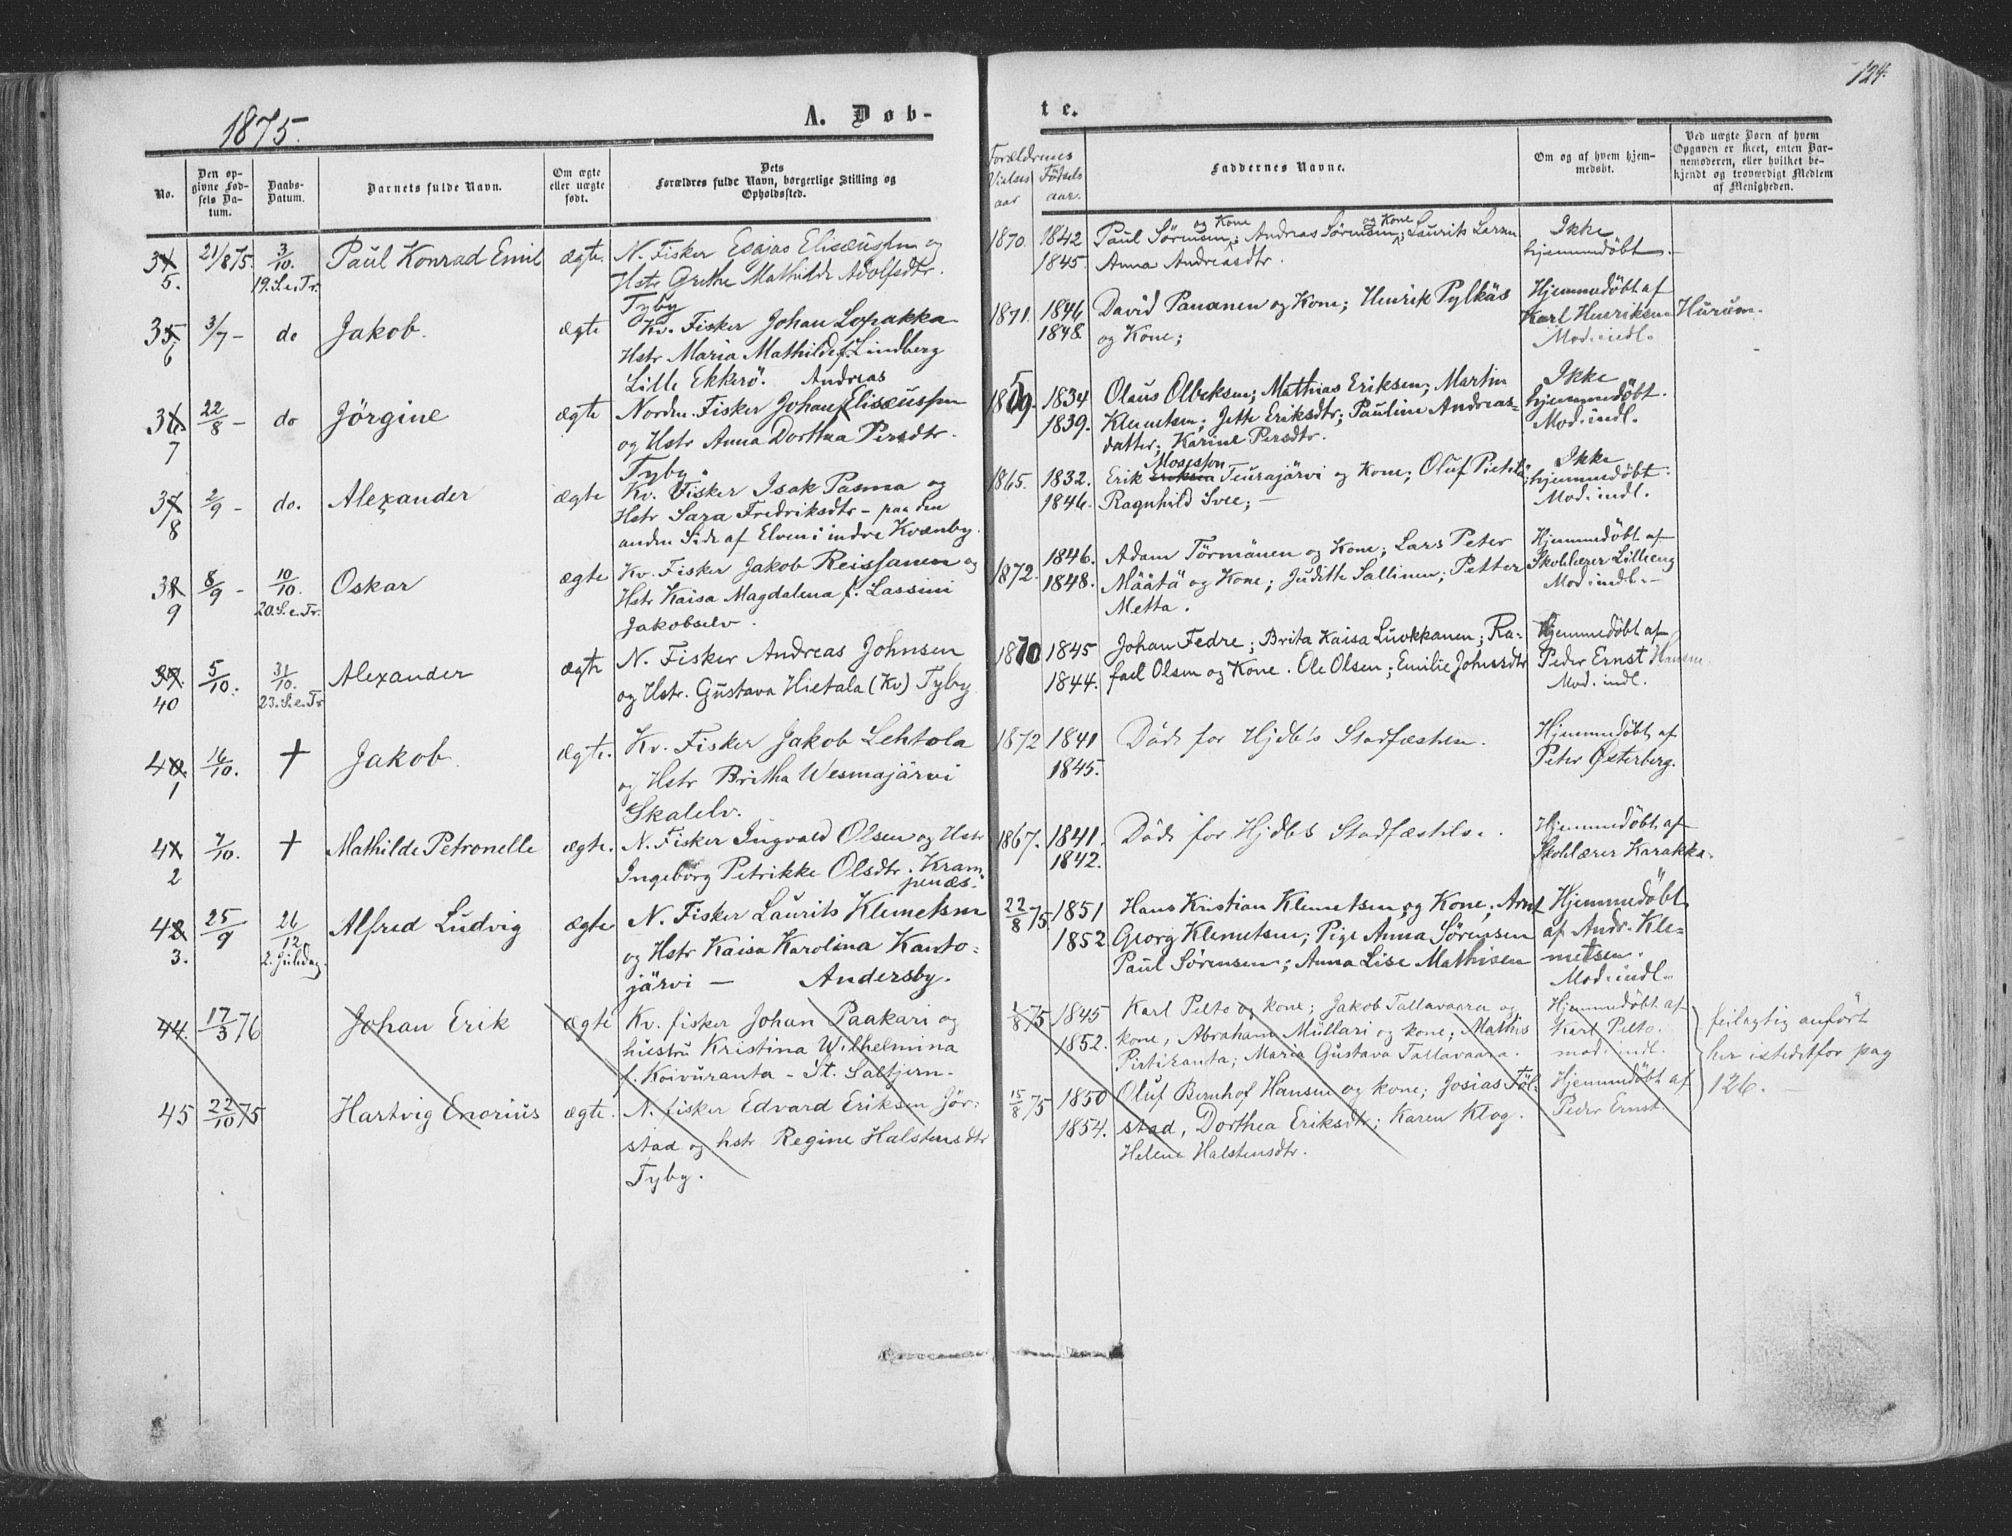 1875.
A. Døb-
te.
124.
No.
Den opgivne Fødsels Datum.
Daabs-Datum.
Barnets fulde Navn.
Om ægte eller uægte født.
Dets Forældres fulde Navn, borgerlige Stilling og Opholdssted.
Forældrenes
Vielses aar
Fødsels aar.
Faddernes Navne.
Om og af hvem hjemmedøbt.
Ved uægte Børn af hvem Opgaven er skeet, enten Barnemoderen, eller hvilket bekjendt og troværdigt Medlem af Menigheden.
34 5. 21/8 75. 3/10. 19. S. e. Tr. Paul Konrad Emil ægte N. Fisker Esajas Elisæussen og
Hstr Grethe Mathilde Adolfsdtr.
Tyby
1870. 1842 1845. Paul Sörensen og Kone; Andreas Sørensen og Kone; Laurits Larsen
Anna Andreasdtr.
Ikke
hjemmedöbt.
35 6 3/7 - do Jakob. ægte Kv. Fisker Johan Lopakka
Hstr Maria Mathilde f. Lindberg
Lille Ekkerö.
1871. 1846 1848 David Pananen og Kone; Henrik Pylkäs
og Kone;
Hjemmedöbt af
Karl Henriksen Hurum.
Mod. indl.
36 7 22/8 - do Jörgine ægte Norden. Fisker Johan Andreas Elisæussen
og Hstr Anna Dorthea Persdtr.
Tyby
1859. 1834 1839. Olaus Olbeksen; Mathias Eriksen; Martin
Klemetsen; Jette Eriksdtr; Pauline Andreas-
datter; Karine Persdtr.
Ikke
hjemmedöbt.
Mod. indl.
37 8 2/9 - do. Alexander ægte Kv. Fisker Isak Pasma og
Hstr Sara Fredriksdtr - paa den
anden Side af Elven i indre Kvænby.
1865. 1832. 1846. Erik Eriksen Mosesson Teurajärvi og Kone; Oluf Pietilä;
Ragnhild Svee; -
Ikke
hjemmedöbt.
Mod. indl.
38 9 8/9 - 10/10. 20. S. e. Tr. Oskar ægte Kv. Fisker Jakob Reissanen og
Hstr Kaisa Magdalena f. Lassini
Jakobselv.
1872. 1846. 1848. Adam Törmänen og Kone; Lars Peter
Määtä og Kone; Judithe Sallinen; Petter
Metta.
Hjemmedöbt af
Skolelærer Lilleeng
Mod. indl. -
39. 40 5/10. 31/10. 23. S. e. Tr Alexander ægte N. Fisker Andreas Johnsen
og Hstr. Gustava Hietala (Kv) Tyby.
1870 1845 1844. Johan Fedre; Brita Kaisa Luokkanen; Ra-
fael Olsen og Kone. Ole Olsen; Emilie Johnsdtr
Hjemmedöbt af
Peder Ernst Hansen.
Mod. indl.
40. 1 16/10. + Jakob. ægte. Kv. Fisker Jakob Lehtola
og Hstr Britha Wesmajärvi
Skalelv.
1872 1841 1845. Död for Hjdb's Stadfæstelse.
Hjemmedöbt af
Peter Østerberg.
41 2 7/10. + Mathilde Petronelle ægte. N. Fisker Ingvald Olsen og Hstr
Ingeborg Petrikke Olsdtr. Kram-
penæs.
1867. 1841. 1842. Död for Hjdbs Stadfæstelse.
Hjemmedöbt af
Skolelærer Karakka.
42 3. 25/9 26/12 2. Juledag. Alfred Ludvig ægte N. Fisker Laurits Klemetsen
og Hstr Kaisa Karolina Kanto-
järvi - Andersby.
22/8 75 1851 1852 Hans Kristian Klemetsen og Kone; Arnt
Georg Klemetsen; Pige Anna Sørensen
Paul Sørensen; Anna Lise Mathisen
Hjemmedöbt
af Andr. Kle-
metsen.
Mod. indl.
44. 17/3 76 Johan Erik ægte Kv. fisker Johan Paakari og
hustru Kristina Wilhelmina
f. Koivuranta - St. Saltjern.
1/8 75 1845 1852. Karl Pelto og kone; Jakob Tallavaara og
kone, Abraham Mullari og kone; Mathis
Pirtikanta; Maria Gustava Tallavaara.
Hjemmedöbt af
Karl Pelto.
mod. indl.
feilagtig anført
her istedetfor pag
126.
45 22/10 75 Hartvig Enorius ægte. N. fisker Edvard Eriksen Jör-
stad og hstr Regine Halstensdtr
Tyby.
15/8 75 1850 1854. Oluf Bernhof Hansen og kone; Josias Föl-
stad, Dorthea Eriksdtr; Karen Klog.
Helene Halstensdtr.
Hjemmedöbt af
Peder Ernst